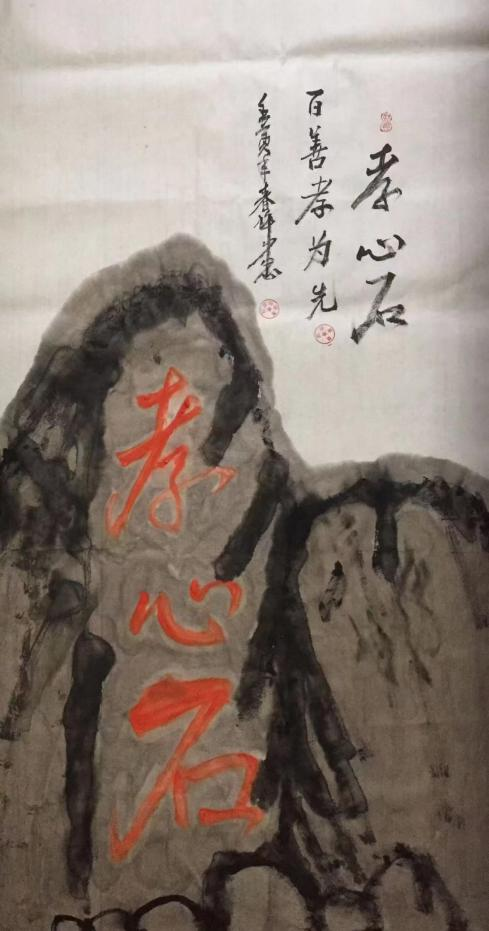 孝心石
百善孝为先
壬寅年春月
孝心石